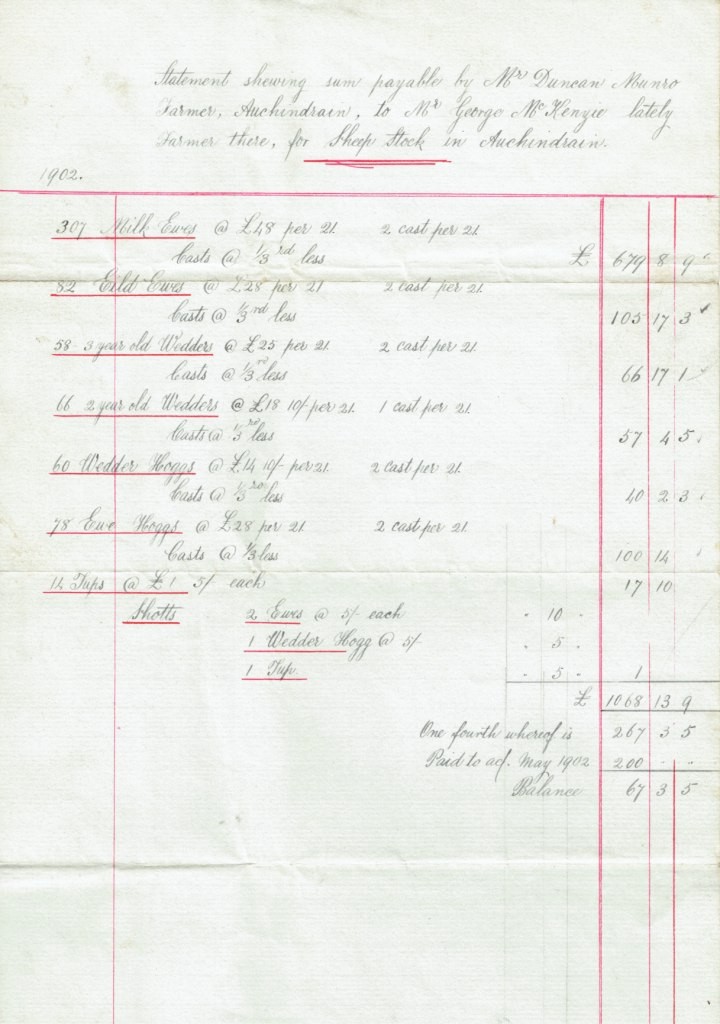 Statement shewing sum payable by Mr Duncan Munro
Farmer, Auchindrain, to Mr George McKenzie lately
Farmer there, for Sheep Stock in Auchindrain.
1902.
307 Milk Ewes @ £48 per 21. 2 cast per 21.
Casts @ 1/3rd less £ 679 8 9
82 Eild Ewes @ £28 per 21 2 cast per 21.
Casts @ 1/3rd less 105 17 3
58 3 year old Wedders @ £25 per 21. 2 cast per 21.
Casts @ 1/3rd less 66 17 1
66 2 year old Wedders @ £18 10/- per 21. 1 cast per 21.
Casts @ 1/3rd less 57 4 5
60 Wedder Hoggs @ £14 10/- per 21. 2 cast per 21.
Casts @ 1/3rd less 40 2 3
78 Ewe Hoggs @ £28 per 21. 2 cast per 21.
Casts @ 1/3 less 100 14
14 Tups @ £1 5/- each 17 10
Shotts 2 Ewes @ 5/- each - 10 -
1 Wedder Hogg @ 5/- - 5 -
1 Tup. - 5 - 1
£ 1068 13 9
One fourth whereof is 267 3 5
Paid to acc. May 1902 200 - -
Balance 67 3 5